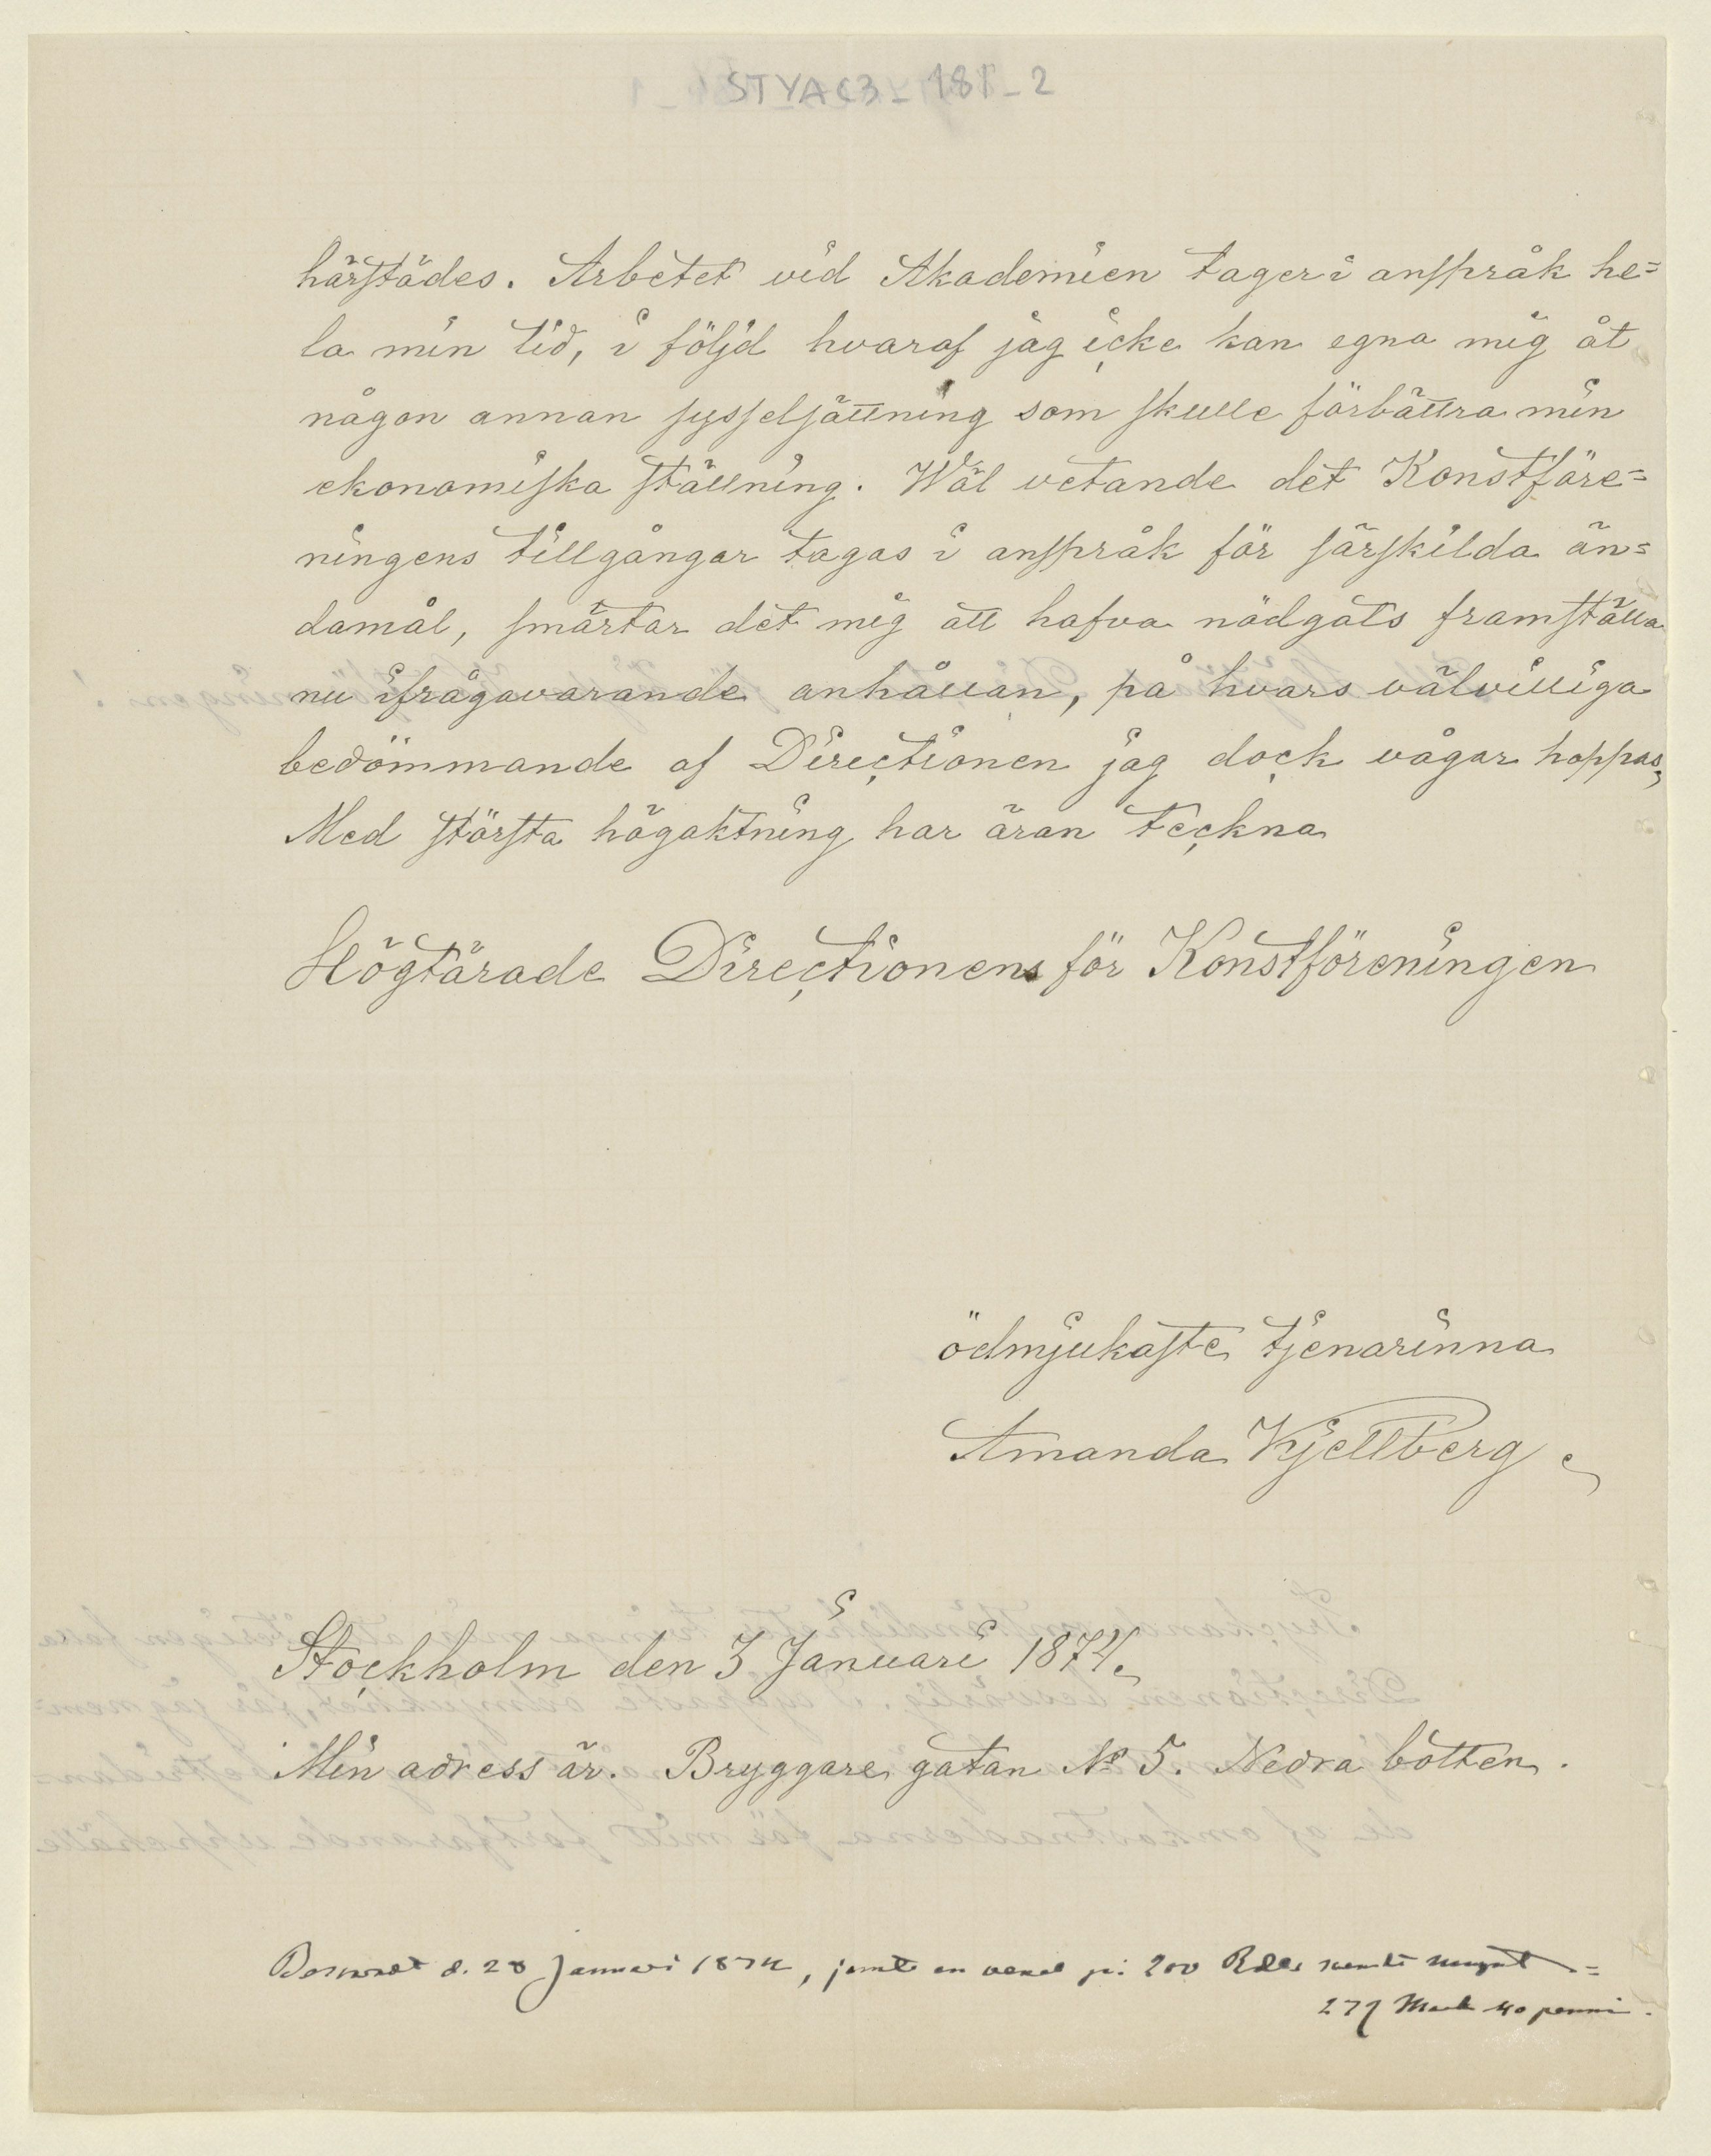 STYAC3_181_2
härstädes. Arbetet vid Akademien tager i anspråk he=
la min tid, i följd hvaraf jag icke kan egna mig åt
någon annan sysselsättning som skulle förbättra min
ekonomiska ställning. Wäl vetande det Konstföre=
ningens tillgångar tagas i anspråk för särskilda än=
damål, smärtar det mig att hafva nödgats framställa
nu ifrågavarande anhållan, på hvars välvilliga
bedömmande af Directionen jag dock vågar hoppas,
Med största högaktning har äran teckna
Högtärade Directionens för Konstföreningen
ödmjukaste tjenarinna
Amanda Kjellberg
Stockholm den 3 Januari 1874.
Min adress är. Bryggare gatan No 5. Nedra botten.
Besvarat d. 28 Januari 1874, jemte en vexel på 200 Rdlr =
277 Mark 40 penni.